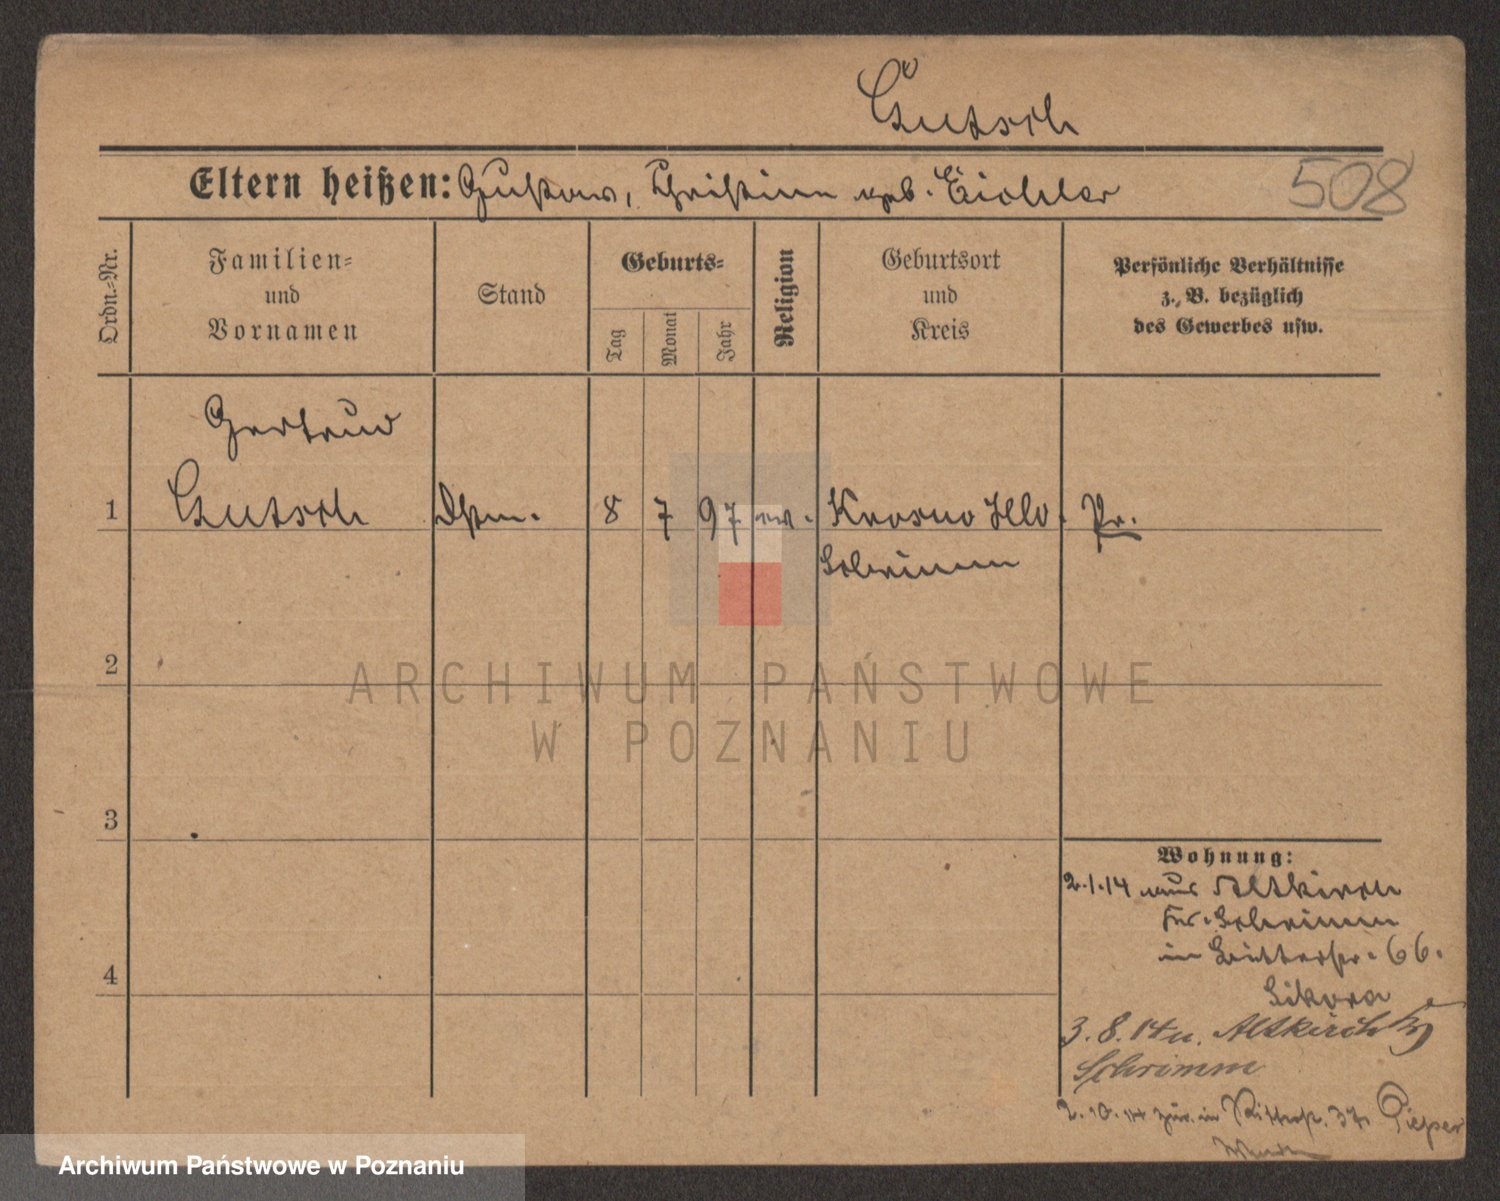 Gutsch
Eltern heißen: Gustav, Christine geb. Eichler
508
Ordn.-Nr.
Familien-
und
Vornamen
Stand
Geburts-
Tag
Monat
Jahr
Religion
Geburtsort
und
Kreis
Persönliche Verhältnisse
z. B. bezüglich
des Gewerbes usw.
Gertrud
1 Gutsch Dstm. 8 7 97 ev. Krosno Hld. Pr.
Schrimm
2
3
4
Wohnung:
2.1.14 aus Altkirch
Kr. Schrimm
in Ritterstr. 66.
Sikora
3.8.14 n. Altkirch Kr
Schrimm
2.10.14 zur. in Ritterstr. 37, Pieper
ARCHIWUM PAŃSTWOWE
W POZNANIU
Archiwum Państwowe w Poznaniu